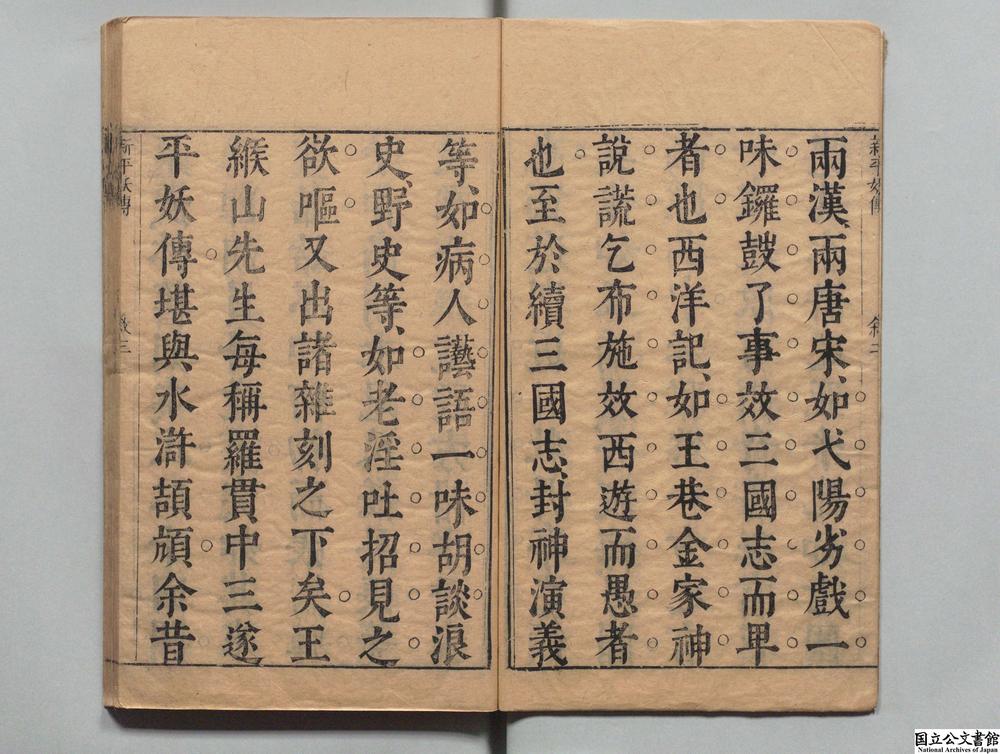 兩漢、兩唐宋、如弋陽劣戲一
味鑼鼓了事效三國志而卑
者也西洋記、如王巷金家神
說謊乞布施效西遊而愚者
也至於續三國志、封神演義
等、如病人譫語一味胡談浪
史、野史等、如老淫吐招見之
欲嘔又出諸雜刻之下矣王
緱山先生每稱羅貫中三遂
平妖傳堪與水滸頡頏余昔
新平妖傳
叙二
新平妖傳
叙三
国立公文書館
National Archives of Japan